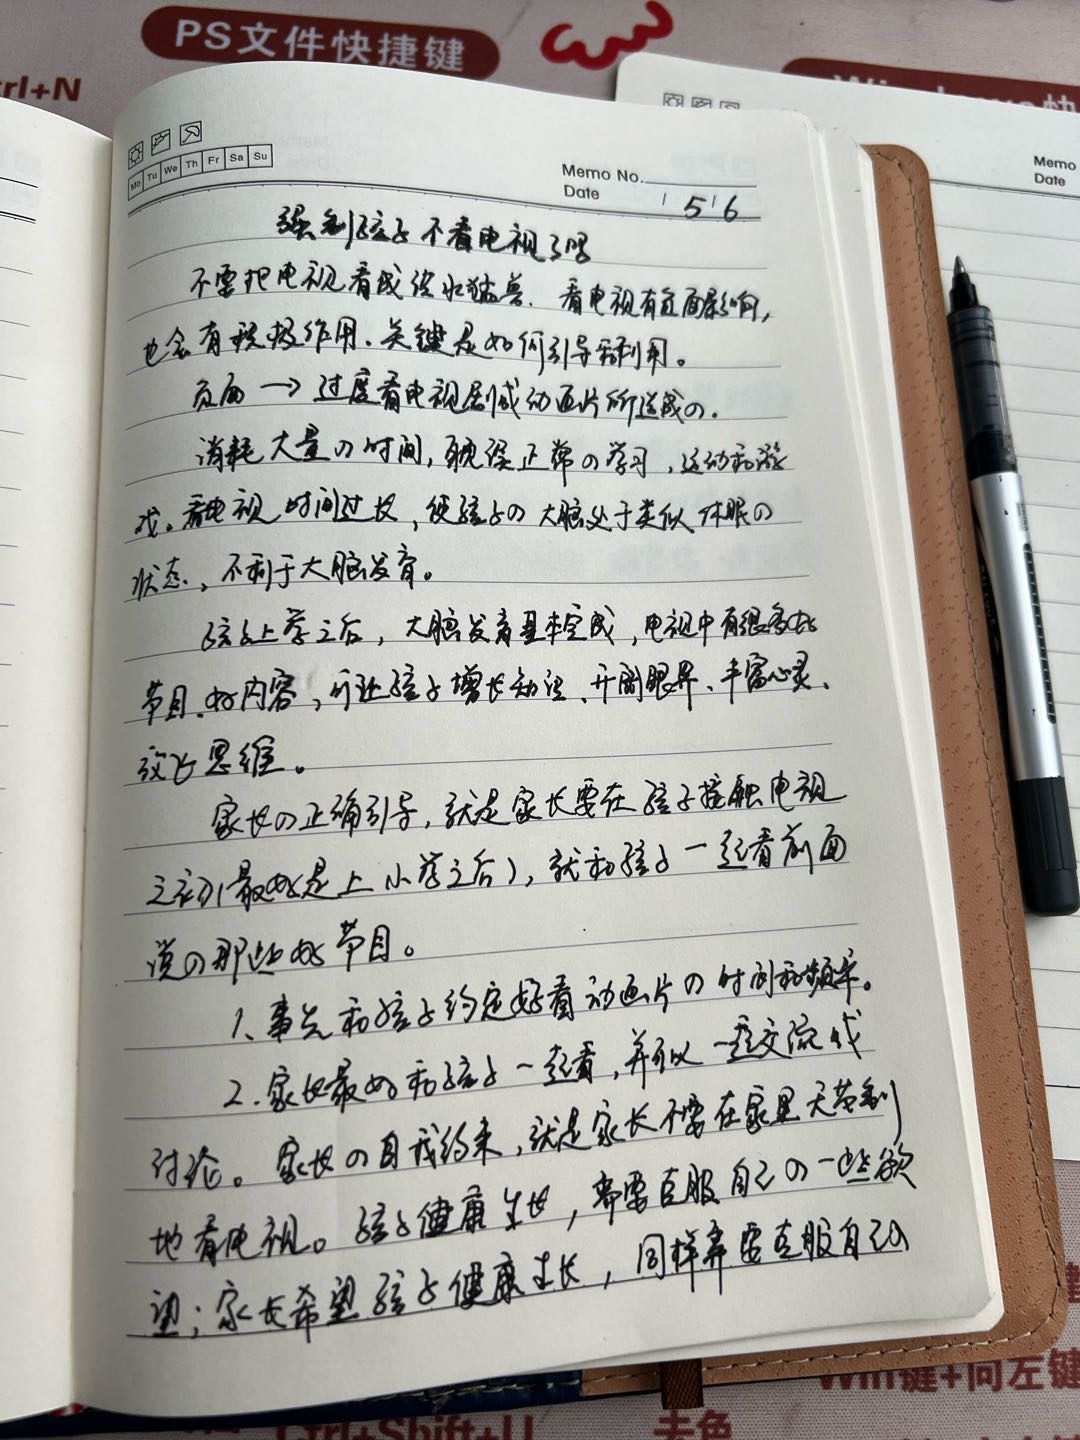 PS文件快捷键
trl+N
Mo Tu We Th Fr Sa Su
Memo No.
Date 5 6
Memo
Date
强制孩子不看电视了吗
不要把电视看成洪水猛兽.看电视有负面影响,
也会有积极作用.关键是如何引导和利用。
负面→过度看电视剧或动画片所造成の.
消耗大量の时间,耽误正常の学习,运动和游
戏。看电视时间过长,使孩子の大脑处于类似休眠の
状态,不利于大脑发育。
孩子上学之后,大脑发育基本完成,电视中有很多好
节目、好内容,可让孩子增长知识、开阔眼界、丰富心灵、
放飞思维。
家长の正确引导,就是家长要在孩子接触电视
之初(最好是上小学之后),就和孩子一起看前面
说の那些好节目。
1、事先和孩子约定好看动画片の时间和频率。
2.家长最好和孩子一起看,并可以一起交流或
讨论。家长の自我约束,就是家长不要在家里无节制
地看电视。孩子健康生长,需要克服自己の一些欲
望;家长希望孩子健康生长,同样需要克服自己の
Win键+向左键
Ctrl+Shift+U
去色